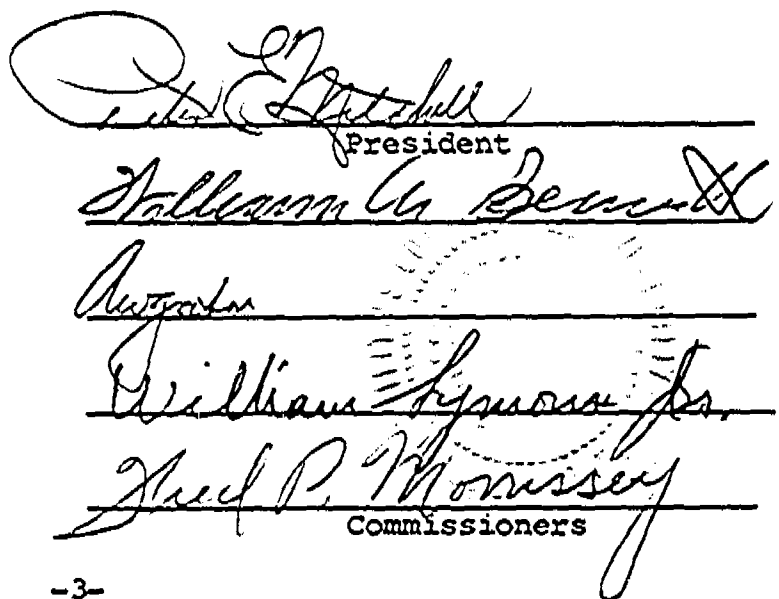 Peter E Mitchell
President
William A Bennett
William Symons Jr.
Fred P. Morrissey
Commissioners
-3-